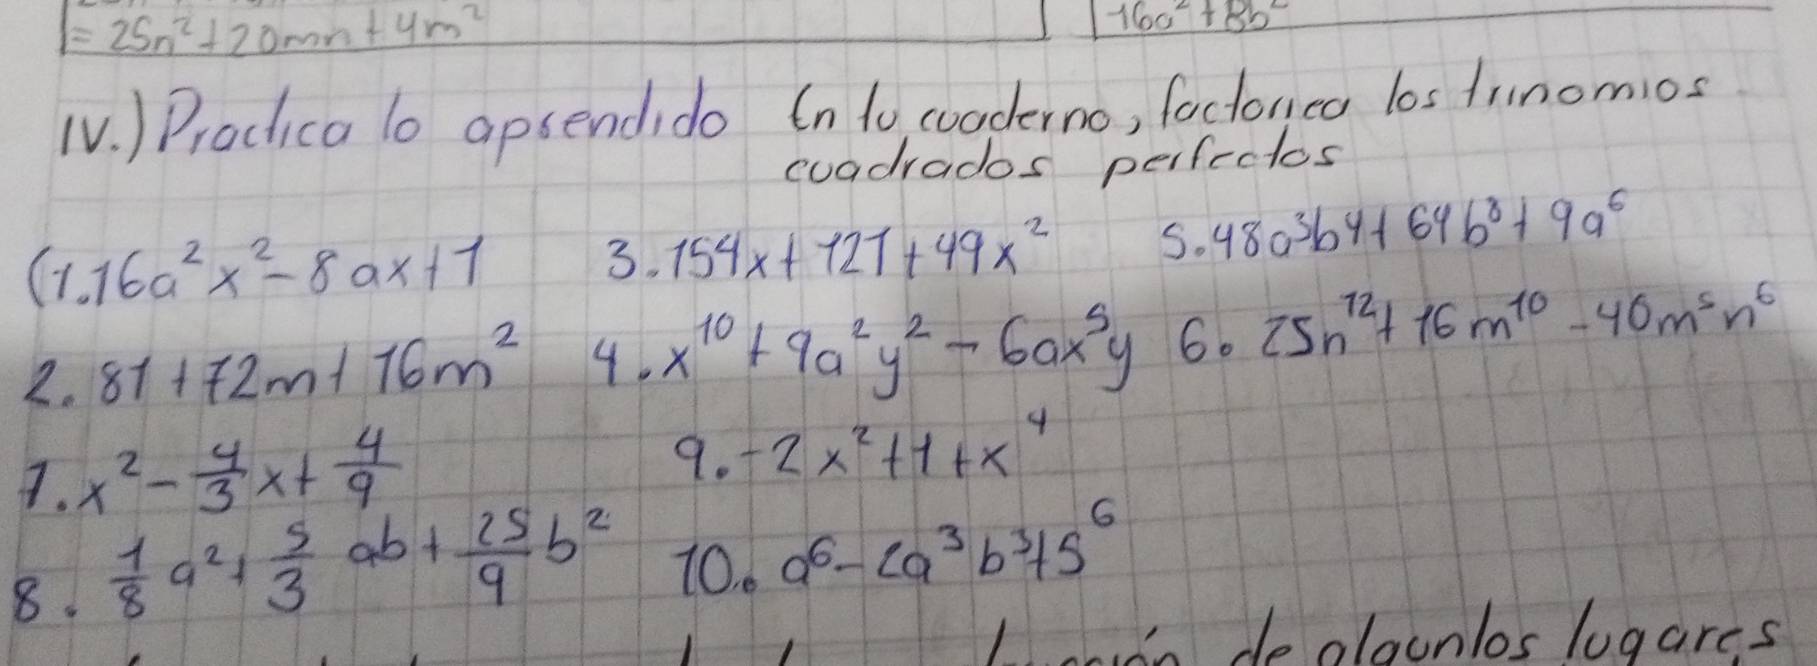 = 25n²+20mn+4m²
16a²+8b²
IV.) Practica lo apsendido En tu cuaderno, factoriza los trinomios
cuadrados perfectos
(1. 16a²x²-8ax+1 3. 154x+121+49x² 5. 48a³b⁴+64b⁸+9a⁶
2. 81+72m+16m² 4. x¹⁰+9a²y²-6ax⁵y 6. 25n¹²+16m¹⁰-40m⁵n⁶
7. x²-4/3x+4/9 9. -2x²+1+x⁴
8. 1/8a²+5/3ab+25/9b² 10. a⁶-2a³b³+5⁶
de algunlos lugares